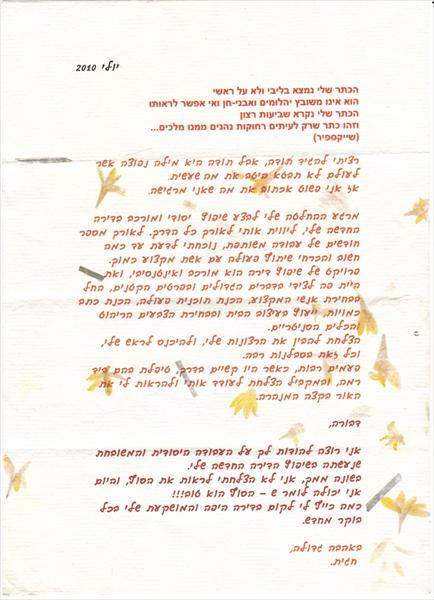 יולי 2010
הכתר שלי נמצא בליבי ולא על ראשי
הוא אינו משובץ יהלומים ואבני-חן ואי אפשר לראותו
הכתר שלי נקרא שביעות רצון
וזהו כתר שרק לעיתים רחוקות נהנים ממנו מלכים...
(שייקספיר)
רציתי להגיד תודה, אבל תודה היא מילה נפוצה אשר
לעולם לא תבטא היטב את מה שעשית.
אז אני פשוט אכתוב את מה שאני מרגישה.
מרגע ההחלטה שלי לבצע שיפוץ יסודי ומורכב בדירה
החדשה שלי, ליווית אותי לאורך כל הדרך. לאורך מספר
חודשים של עבודה משותפת, נוכחתי לדעת עד כמה
חשוב והכרחי שיתוף פעולה עם אשת מקצוע כמוך.
פרויקט של שיפוץ דירה הוא מורכב ואינטנסיבי, ואת
היית פה לצידי בדברים הגדולים ובפרטים הקטנים, החל
בבחירת אנשי המקצוע, הכנת תוכנית פעולה, הכנת כתב
כמויות, ייעוץ בעיצוב הבית ובבחירת הצבעים הריהוט
והכלים הסניטריים.
הצלחת להבין את הרצונות שלי, ולהיכנס לראש שלי,
וכל זאת בסבלנות רבה.
פעמים רבות, כאשר היו קשיים בדרך, טיפלת בהם ביד
רמה, ובמקביל הצלחת לעודד אותי ולהראות לי את
האור בקצה המנהרה.
דבורה,
אני רוצה להודות לך על העבודה היסודית והמשובחת
שנעשתה בשיפוץ הדירה החדשה שלי.
בשונה ממך, אני לא הצלחתי לראות את הסוף, והיום
אני יכולה לומר ש - הסוף הוא טוב!!!
כמה כייף לי לקום בדירה היפה והמושקעת שלי בכל
בוקר מחדש.
באהבה גדולה,
חגית.